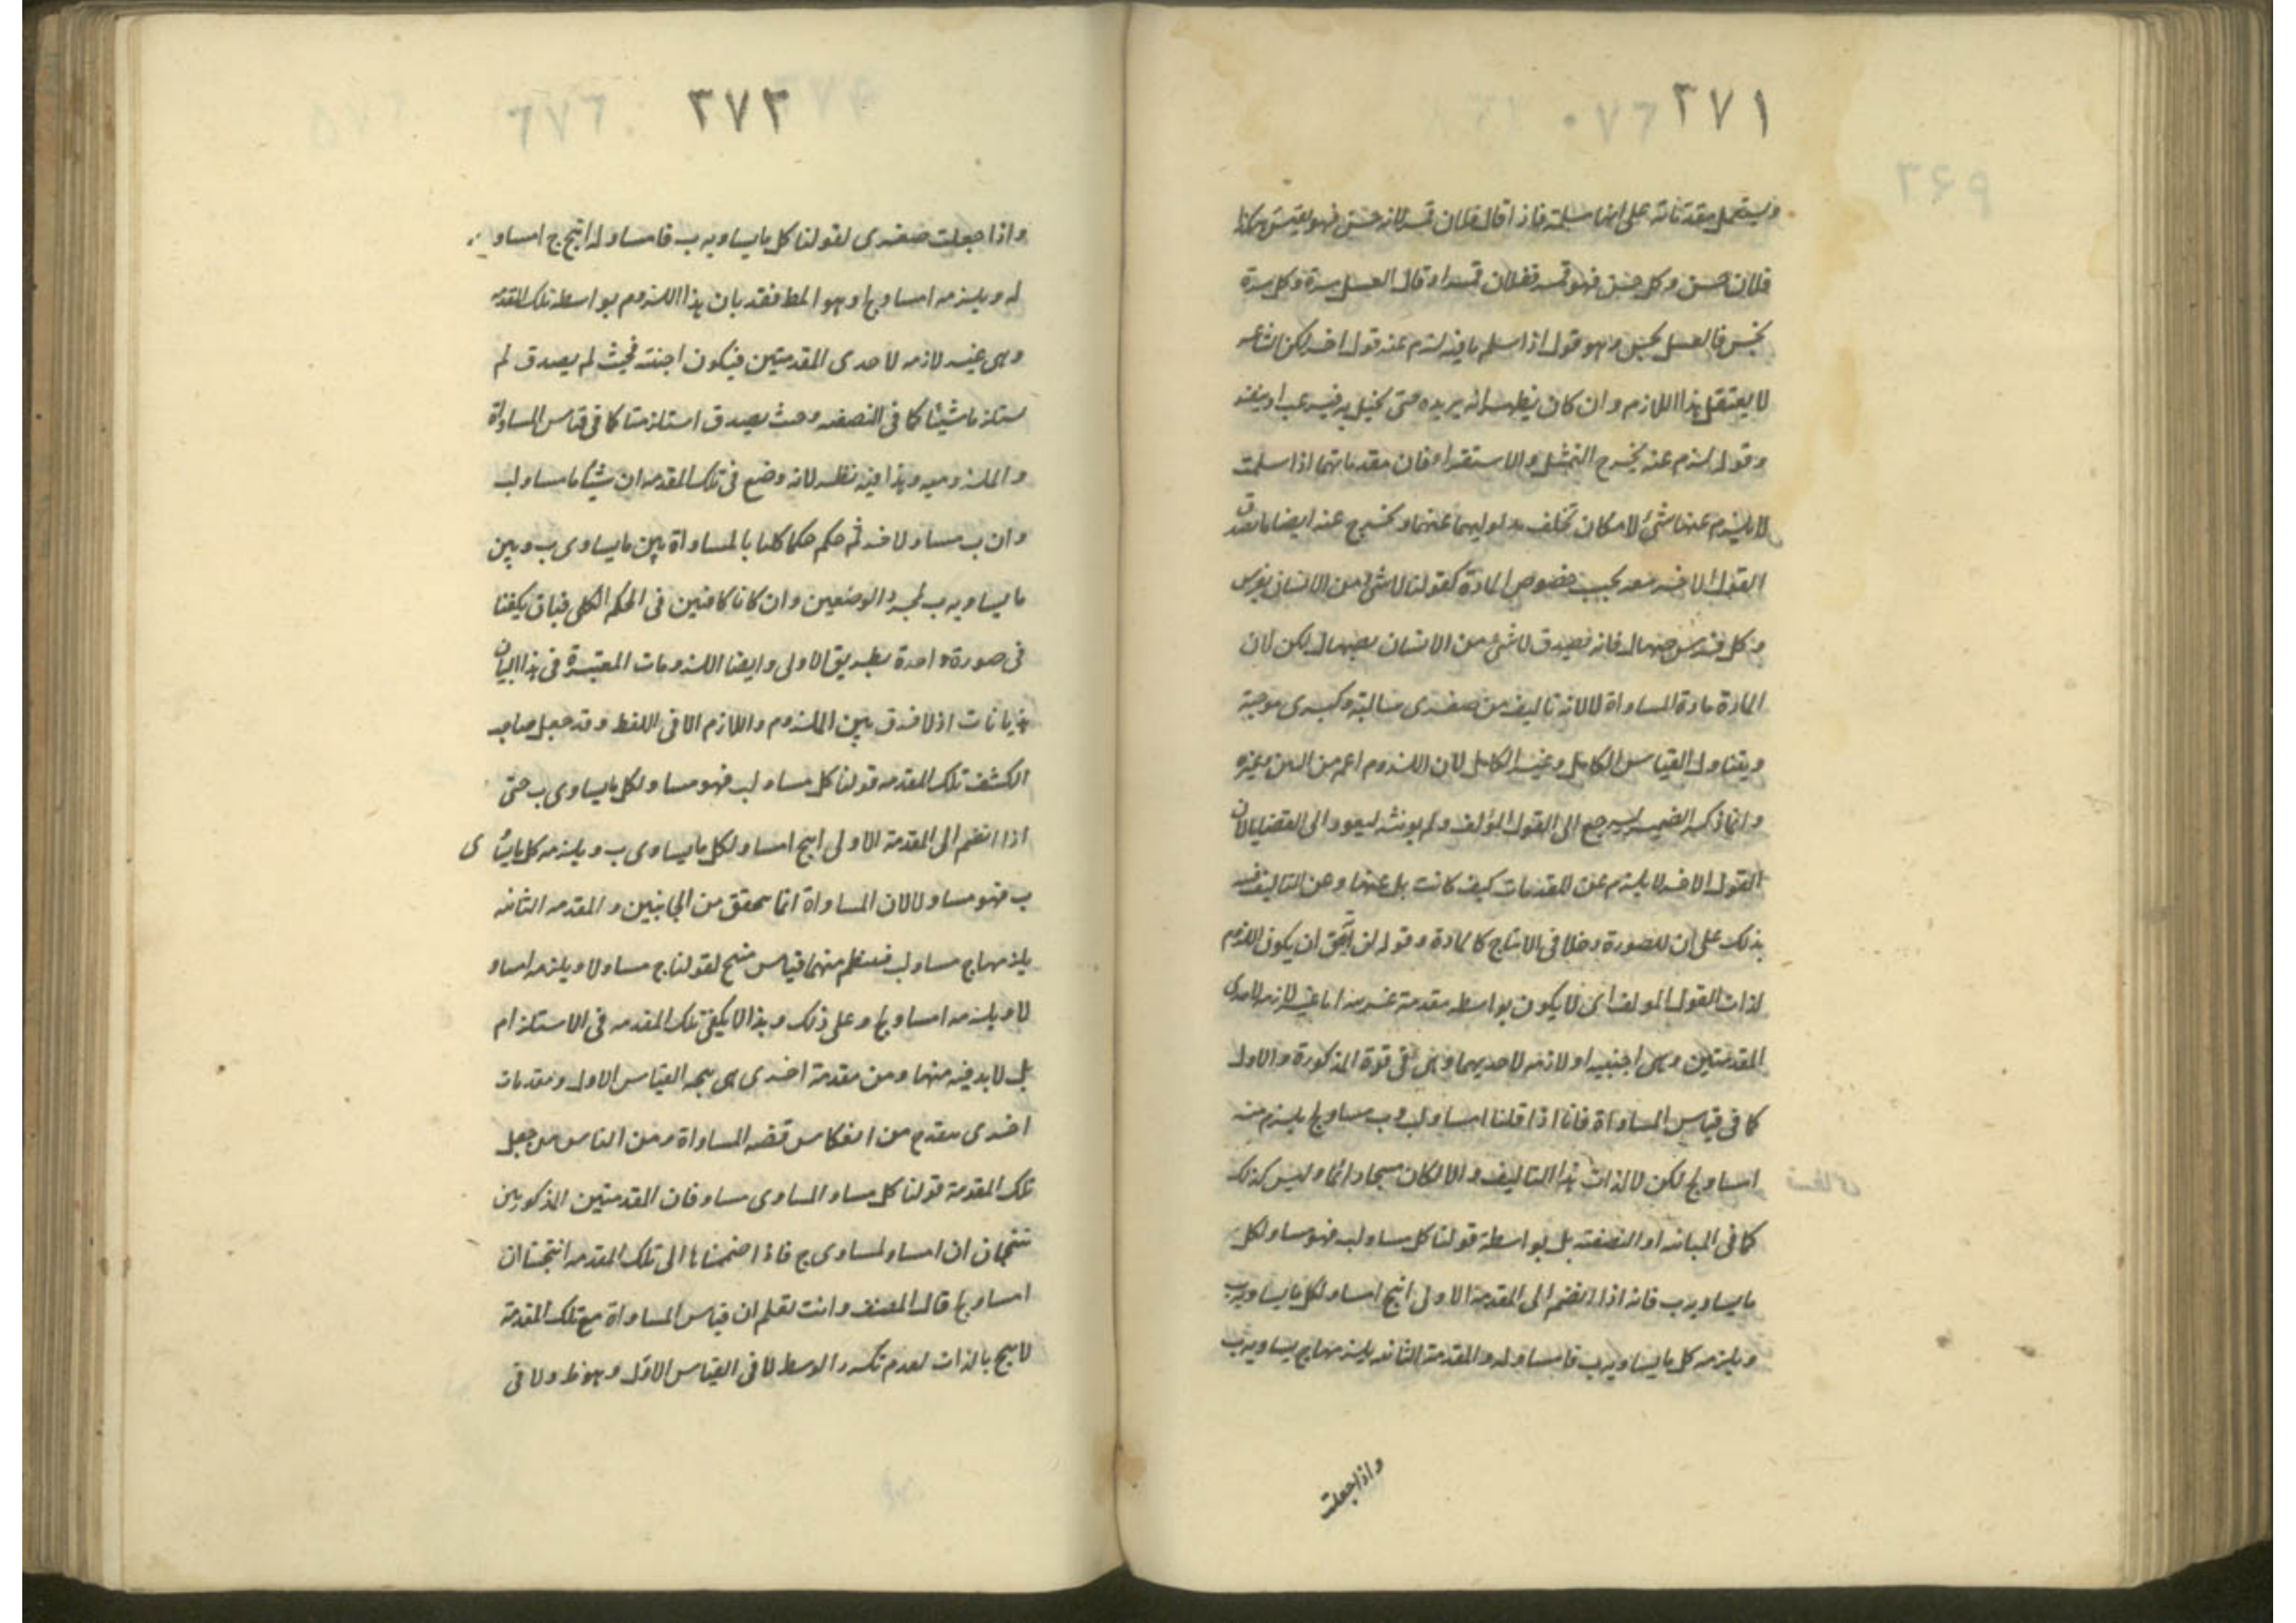 ٢٧١
ويستعمل مقدماته على انها مسلمة فاذا قال فلان قمر لانه حسن فهو يقيس هكذا
فلان حسن وكل حسن فهو قمر ففلان قمر او قال العسل مرة وكل مرة
نجس فالعسل نجس وهو قول اذا سلم ما فيه لزم عنه قول اخر لكن الشاعر
لا يعتقد هذا اللازم وان كان يظهر انه يريده حتى يخيل به فيرغب او ينفر
وقوله لزم عنه يخرج التمثيل والاستقراء فان مقدماتهما اذا سلمت
لا يلزم عنها شئ لامكان تخلف مدلوليهما عنهما ويخرج عنه ايضا ما يصدق
القول الاخر معه بحسب خصوص المادة كقولنا لا شئ من الانسان بفرس
وكل فرس صهال فانه يصدق لا شئ من الانسان بصهال لكن لان
المادة مادة المساواة لا لانه تاليف من صغرى سالبة وكبرى موجبة
ويتناول القياس الكامل وغير الكامل لان اللزوم اعم من البين وغيره
وانما ذكر الضمير ليرجع الى القول المؤلف ولم يونثه ليعود الى القضايا لان
القول الاخر لا يلزم عن المقدمات كيف كانت بل عنها وعن التاليف
بذلك على ان للصورة دخلا في الانتاج كالمادة وقوله ان يكون اللزوم
لذات القول المولف اى لا يكون بواسطه مقدمة غريبه اما غير لازمه لاحدى
المقدمتين وهى اجنبيه او لازمه لاحديهما وهى فى قوة المذكورة والاول
كما فى قياس المساواة فانا اذا قلنا ا مساو لب وب مساو لج يلزم منه
ا مساو لج لكن لا لذات هذا التاليف والا لكان منتجا دائما وليس كذلك
كما فى المباينه او النصفيه بل بواسطة قولنا كل مساو لب فهو مساو لكل
ما يساويه ب فانه اذا انضم الى المقدمة الاولى انتج ا مساو لكل ما يساويه ب
ويلزمه كل ما يساويه ب فا مساو له والمقدمة الثانيه يلزمها ج يساويه ب
واذا جعلت
٢٧٢
واذا جعلت صغرى لقولنا كل ما يساويه ب فا مساو له انتج ج ا مساو
له ويلزمه ا مساو لج وهو المط فقد بان هذا اللزوم بواسطه تلك المقدمه
وهى غير لازمه لاحدى المقدمتين فيكون اجنبيه فحيث لم يصدق لم
يستلزما شيئا كما فى النصفيه وحيث يصدق استلزمتا كما فى قياس المساواة
والملزوميه وهذا فيه نظر لانه وضع فى تلك المقدمه ان شيئا ما مساو لب
وان ب مساو لاخر ثم حكم حكما كليا بالمساواة بين ما يساوى ب وبين
ما يساويه ب لمجرد الوضعين وان كانا كافيين فى الحكم الكلى فبان يكفيا
فى صورة واحدة بطريق الاولى وايضا اللزومات المعتبرة فى هذا البيان
هذيانات اذ لا فرق بين الملزوم واللازم الا فى اللفظ وقد جعل صاحب
الكشف تلك المقدمه قولنا كل مساو لب فهو مساو لكل ما يساوى ب حتى
اذا انضم الى المقدمة الاولى انتج ا مساو لكل ما يساوى ب ويلزمه كل ما يساوى
ب فهو مساو لا لان المساواة انما يتحقق من الجانبين والمقدمه الثانيه
يلزمها ج مساو لب فينتظم منهما قياس منتج لقولنا ج مساو لا ويلزمه ا مساو
لا ويلزمه ا مساو لج وعلى ذلك وهذا لا يكفى تلك المقدمه فى الاستلزام
بل لا بد فيه منها ومن مقدمة اخرى هى نتيجه القياس الاول ومقدمات
اخرى من انعكاس قضيه المساواة ومن الناس من جعل
تلك المقدمة قولنا كل مساو المساوى مساو فان المقدمتين المذكورتين
تنتجان ان ا مساو لمساوى ج فاذا ضممناها الى تلك المقدمه انتجتا ان
ا مساو لج قال المصنف وانت تعلم ان قياس المساواة مع تلك المقدمة
لا ينتج بالذات لعدم تكرر الوسط لا فى القياس الاول وهو ظ ولا فى